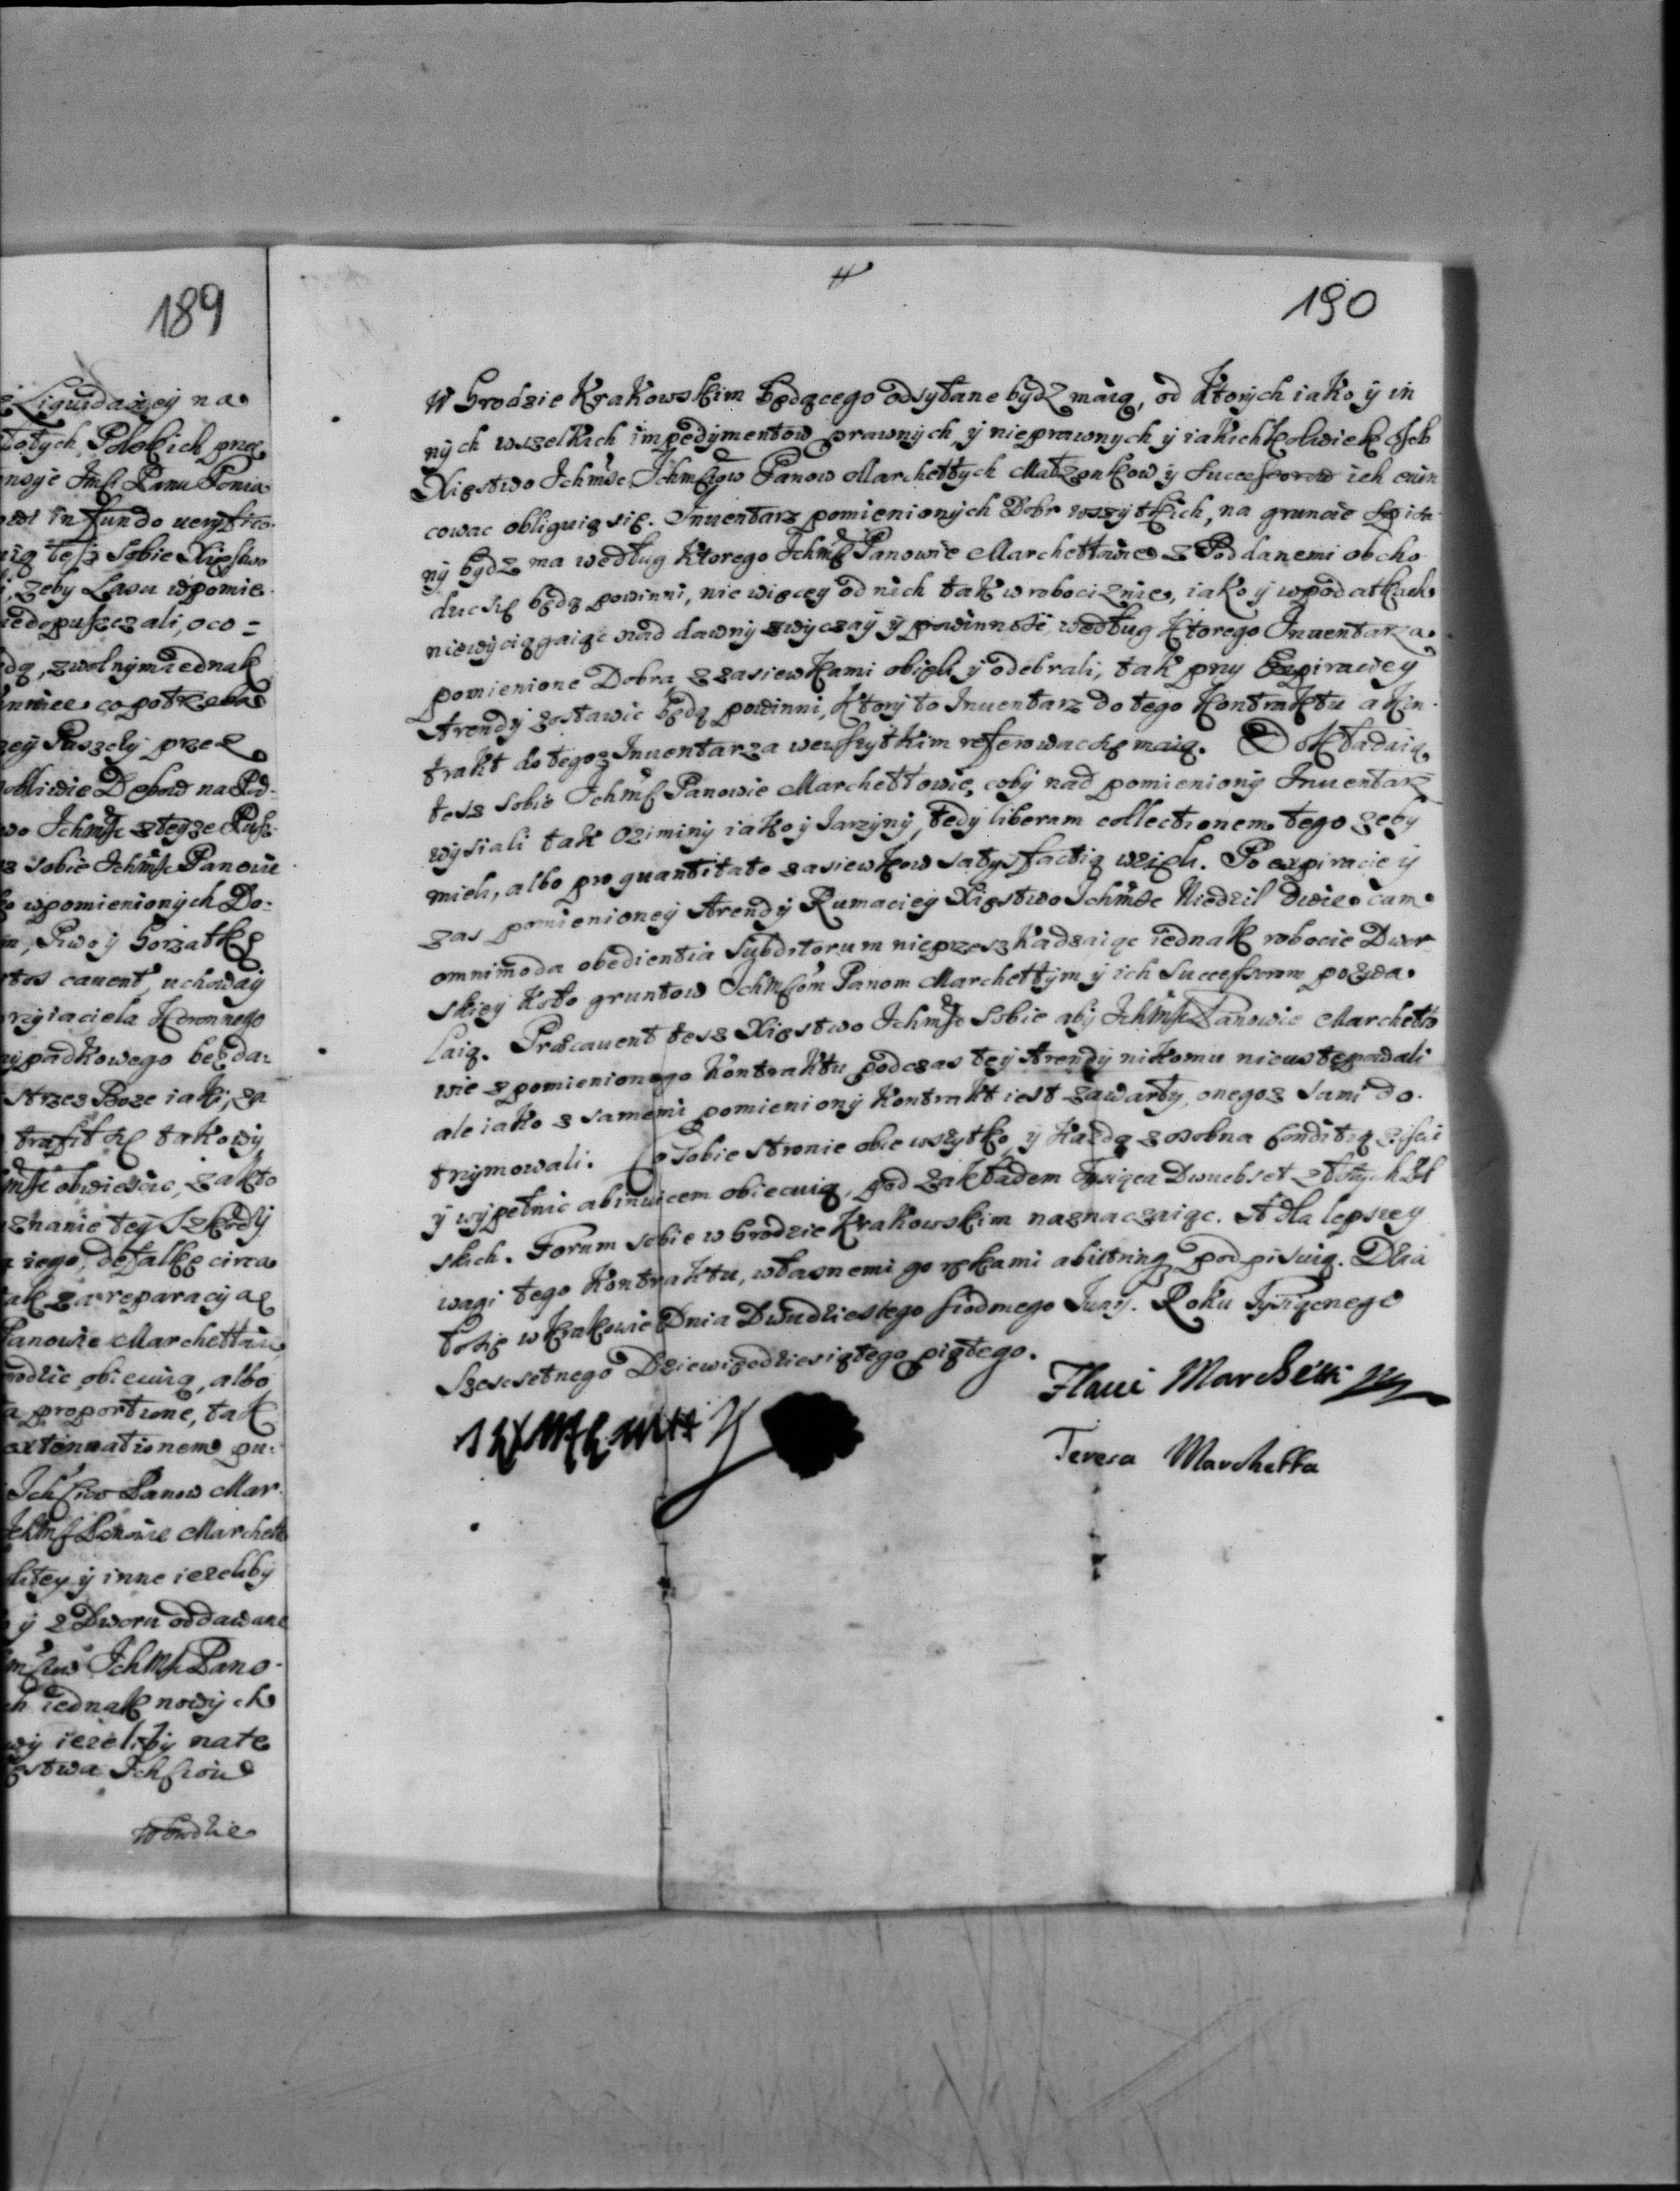 189
Liquidaciey na
totych Polskich prze
nsye Imsc Panu Ponia
in fundo veryfico
tesz sobie Xięstwo
, zeby Lasu wpomie
niedopuszczali, oco =
dą, zwolnymiednak
co potrzeba
zey Puszczy przez
Debow na Pod-
wo Ichmsc ztegze Pusz-
z sobie Ichmsc Panowie
o wpomienionych Do=
, Piwo y Gorzałkę
cavent, uchoway
rzyiaciela Koronnego
ypadkowego będą=
strzez Boze iaki, za
trafił się takowy
msc obwiescic, zakto
znanie tey Szkody
iego, defalkę circa
ak za reparacyą
Panowie Marchettowie
obiecuią, albo
a proportione, tak
extenuationem pu=
Ichsciow Panow Mar-
Ichmsc Panowie Marchett
litey y inne iezeliby
y z Dworu oddawane
Ichmsc Pano-
ch iednak nowych
wy iezeliby nate
stwa Ichsciow
w Grodzie
190
W Grodzie Krakowskim będącego odsyłane bydz maią, od Ktorych iako y in
nych wszelkich impedymentow prawnych y nieprawnych y iakichkolwiek Ich
Xięstwo Ichmsc Ichmsciow Panow Marchettych Małzonkow y Successorow ich evin
cowac obliguią się. Inventarz pomienionych Dobr wszytkich, na gruncie spisa
ny bydz ma według Ktorego Ichmsc Panowie Marchettowie z Poddanemi obcho
dzic się będą powinni, nic więcey od nich tak w robociznie, iako y wpodatkach
niewyciągaiąc nad dawny zwyczay y powinnosc, według Ktorego Inventarza
pomienione Dobra z zasiewkami obieli y odebrali, tak przy Expiraciey
Arendy zostawic będą powinni, Ktory to Inventarz do tego Kontraktu a Kon-
trakt do tegoz Inventarza wewszytkim referowac się maią. Dokładaią
tesz sobie Ichmsc Panowie Marchettowie, coby nad pomieniony Inventarz
wysiali tak Oziminy iako y Jarzyny, tedy liberam collectionem tego zeby
mieli, albo pro quantitate zasiewkow satysfactią wzieli. Po expiraciey
zas pomienioney Arendy Rumaciey Xięstwo Ichmsc Niedziel dwie cum
omnimoda obedientia Subditorum nieprzeszkadzaiąc iednak robocie Dwor
skiey Koło gruntow Ichmsciom Panom Marchettym y ich Successorom pozwa
laią. Præcavent tesz Xięstwo Ichmsc sobie aby Ichmsc Panowie Marchetto
wie z pomienionego Kontraktu podczas tey Arendy nikomu nieustępowali
ale iako z samemi pomieniony Kontrakt iest zawarty, onegoz sami do-
trzymowali. Co sobie stronie obie wszytko, y Kazdą zosobna Conditią ziscic
y wypełnic abinvicem obiecuią, pod zakładem Tysiąca Dwuchset złotych Pol
skich. Forum sobie w Grodzie Krakowskim naznaczaiąc. A dla lepszey
wagi tego Kontraktu, własnemi go rękami abutrinq podpisuią. Działo
się w Krakowie Dnia Dwudziestego siodmego Juny. Roku Tysiącnego
Szescsetnego Dziewięcdziesiątego piątego.
Flavi Marchetti
Teresa Marchetta